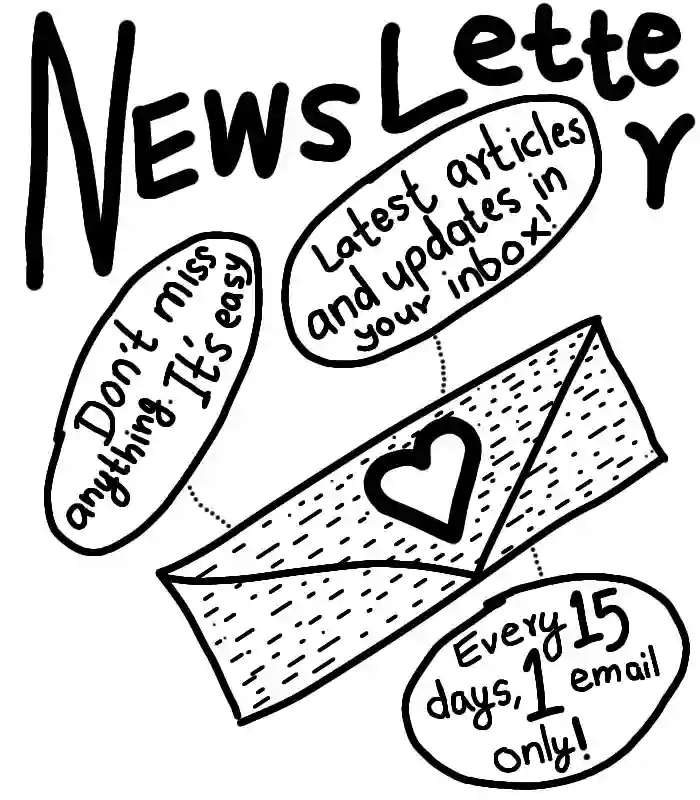 NEWsLetter
Latest articles
and updates in
your inbox!
Don't miss
anything. It's easy
Every 15
days, 1 email
only!